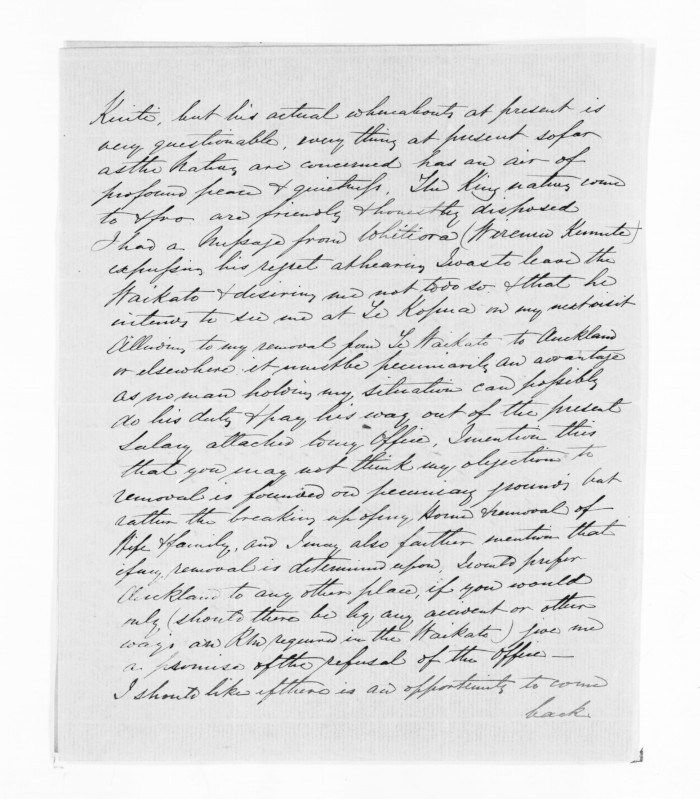 Kereti, but his actual whereabouts at present is
very questionable, every thing at present so far
as the Natives are concerned has an air of
profound peace & quietness, The King natives come
to & fro are friendly & honestly disposed
I had a Message from Whitiora (Wiremu Kumete)
expressing his regret at hearing I was to leave the
Waikato & desiring me not to do so & that he
intends to see me at Te Kopua on my next visit
Alluding to my removal from Te Waikato to Auckland
or elsewhere it must be pecuniarily an advantage
as no man holding my situation can possibly
do his duty & pay his way out of the present
Salary attached to my Office, I mention this
that you may not think my objection to
removal is founded on pecuniary grounds but
rather the breaking up of my Home & removal of
Wife & family, and I may also further mention that
if my removal is determined upon, I would prefer
Auckland to any other place, if you would
only, (should there be by any accident or other
ways an RM required in the Waikato) give me
a promise of the refusal of the Office —
I should like if there is an opportunity to come
back